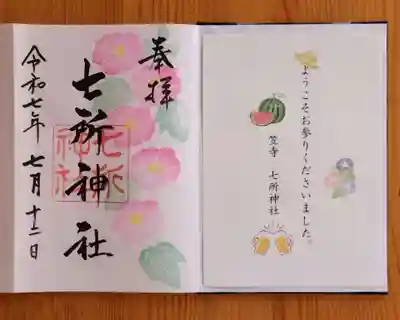 ようこそお参りくださいました。
笠寺 七所神社
奉拝
七所神社
令和七年 七月 十二日
七所神社